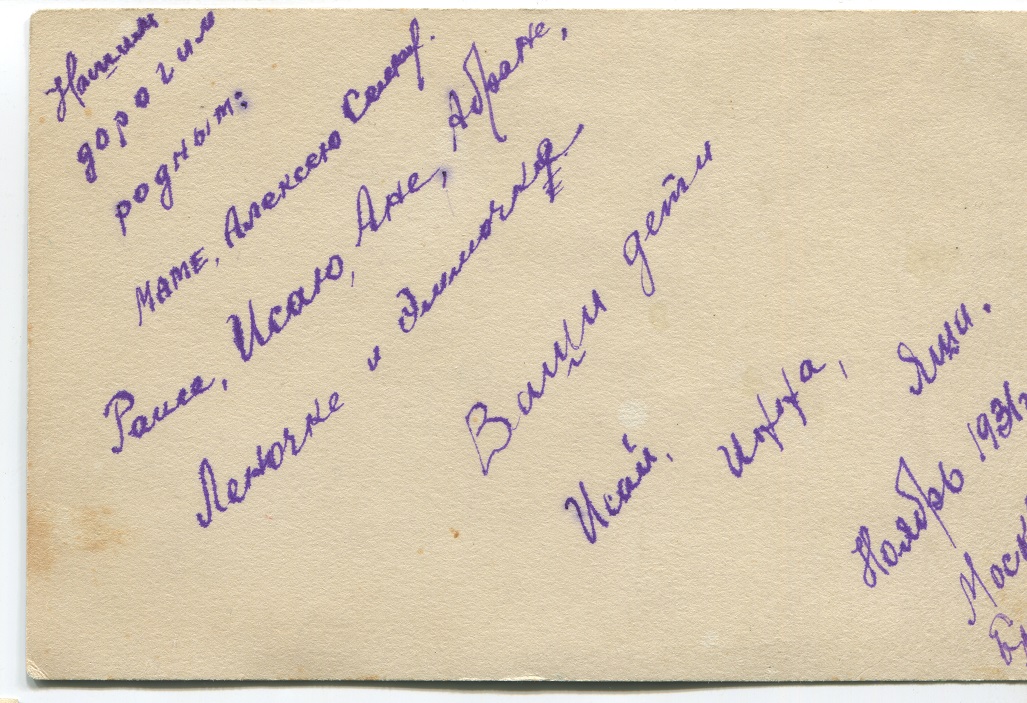 Нашим
дорогим
родным:
маме, Алексею Семен.
Раисе, Исаю, Ане, Абраше,
Леночке и Эммочке.
Ваши дети
Исай, Инна, Яша.
Ноябрь 1931г
Моск